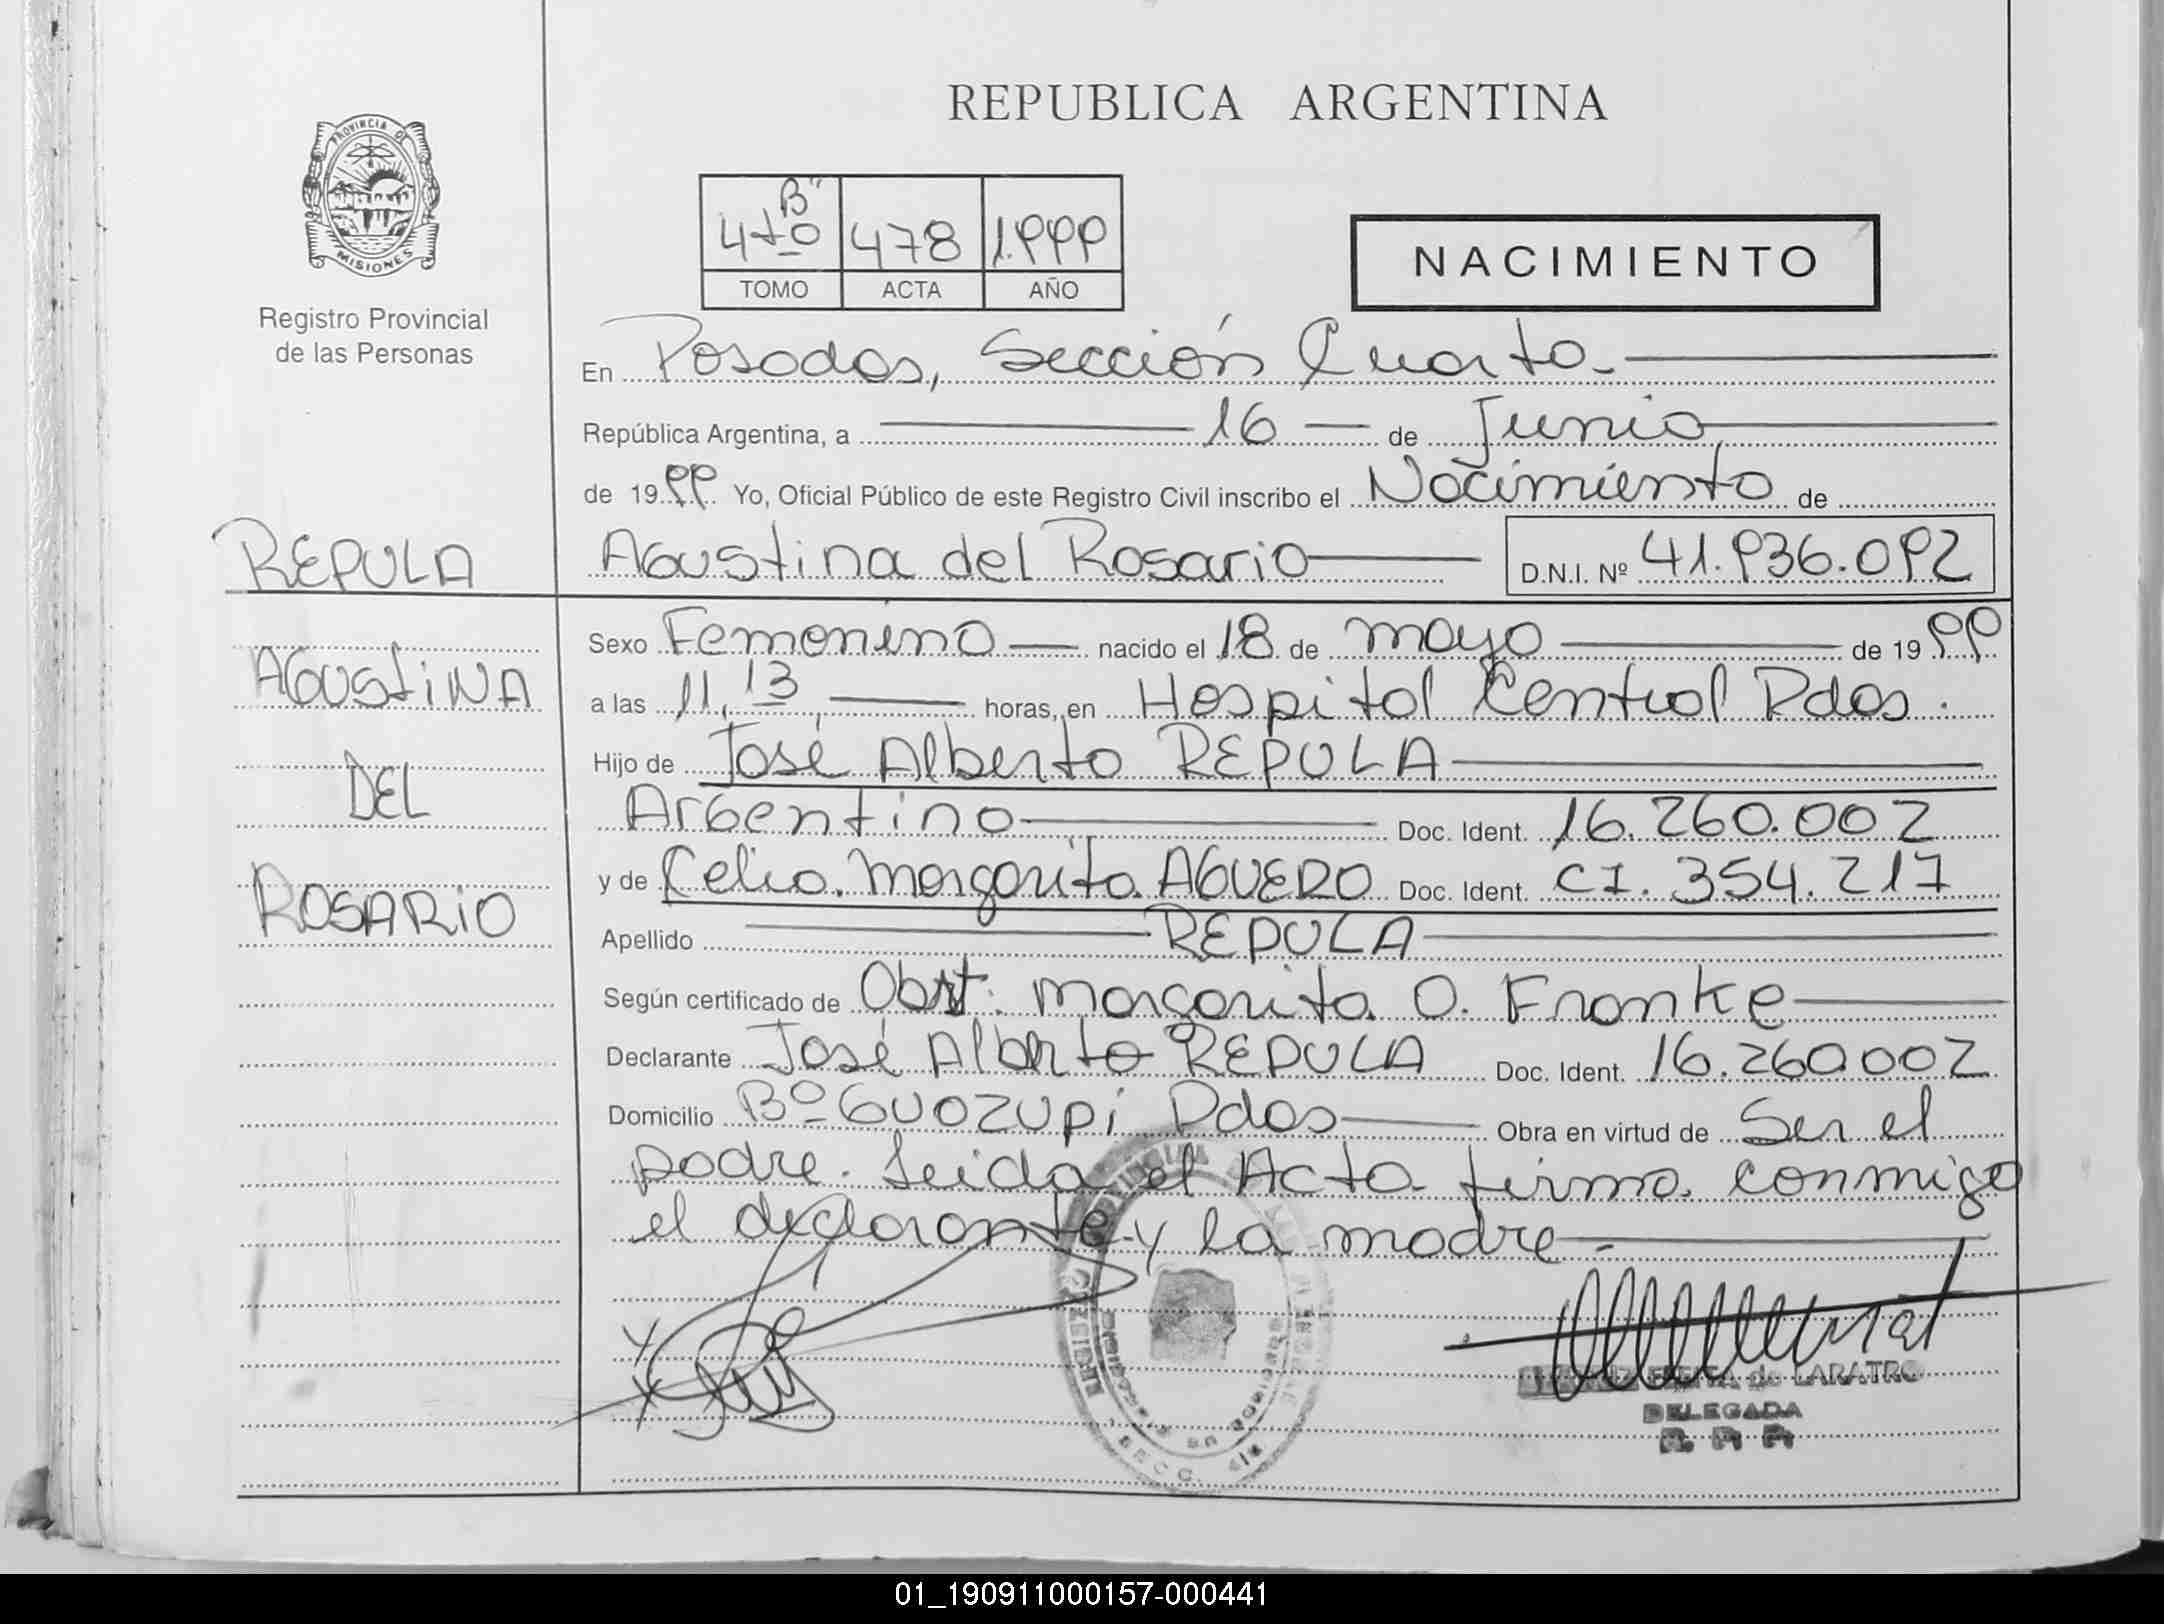 REPUBLICA ARGENTINA
PROVINCIA DE
MISIONES
Registro Provincial
de las Personas
4to "B" 478 1.999
TOMO ACTA AÑO
NACIMIENTO
En Posadas, Sección Cuarta.
República Argentina, a 16 de Junio,
de 1999 Yo, Oficial Público de este Registro Civil inscribo el Nacimiento de
REPULA
Agustina del Rosario D.N.I. Nº 41.936.092
AGUSTINA
DEL
ROSARIO
Sexo Femenino nacido el 18 de mayo de 1999
a las 11,13, horas, en Hospital Central Pdas.
Hijo de José Alberto REPULA
Argentino Doc. Ident. 16.260.002
y de Celia Margarita AGUERO Doc. Ident. CI. 354.217
Apellido REPULA
Según certificado de Obst. Margarita O. Franke
Declarante José Alberto REPULA Doc. Ident. 16.260.002
Domicilio Bº Guazupi Pdas Obra en virtud de Ser el
padre. Leida el Acta firma conmigo
el declarante y la madre.
de LARATRO
DELEGADA
R. P. P.
SECC. 4ta
01_190911000157-000441